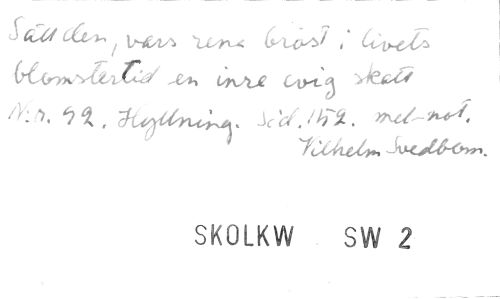 Säll den, vars rena bröst i livets
blomstertid en inre evig skatt
N:r. 92. Hyllning. Sid. 152. mel-not.
Vilhelm Svedbom.
SKOLKW SW 2